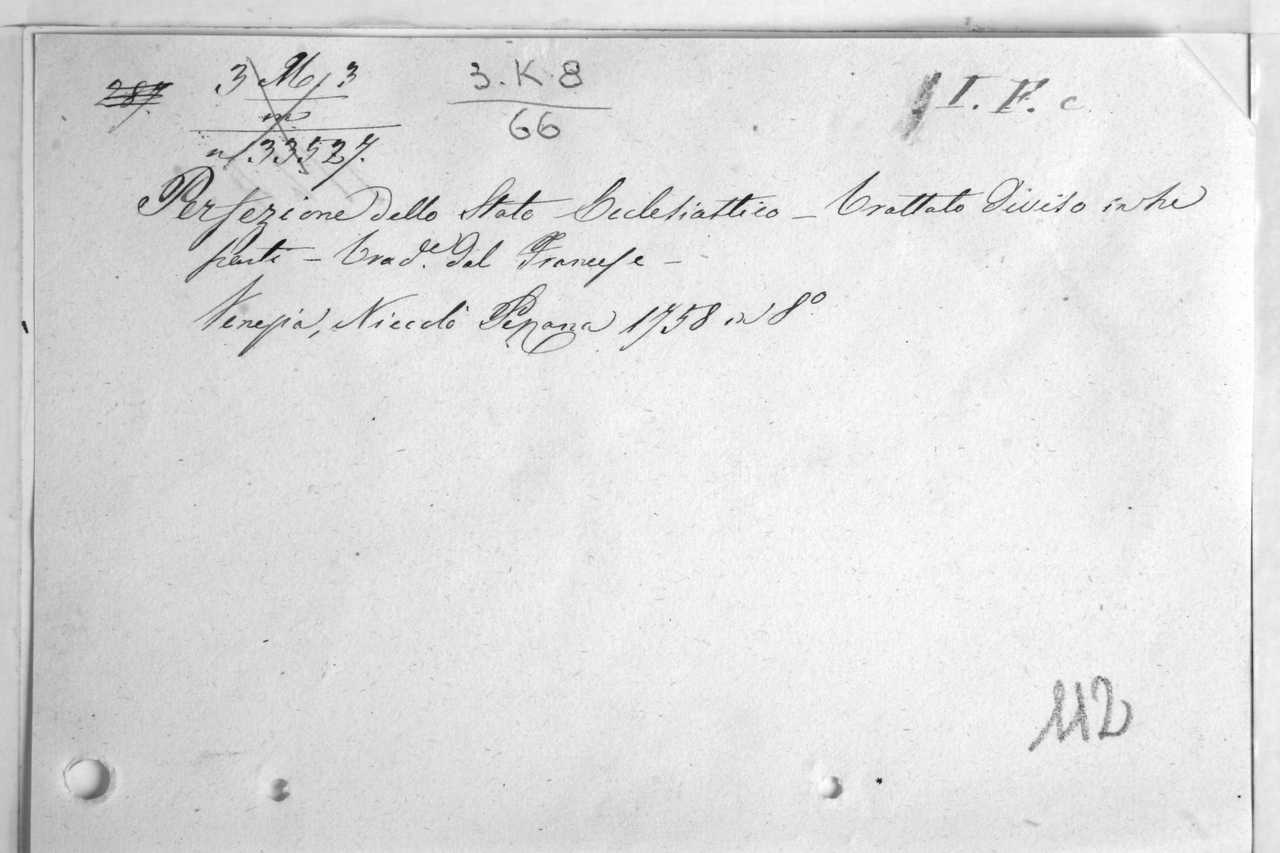 287. 3 M, 3 3. K. 8 I. F. c
m 66
n. 33527.
Perfezione dello Stato Ecclesiastico – Trattato diviso in tre
parti – trad.e dal Francese –
Venezia, Niccolò Pezzana 1758 in 8°
112